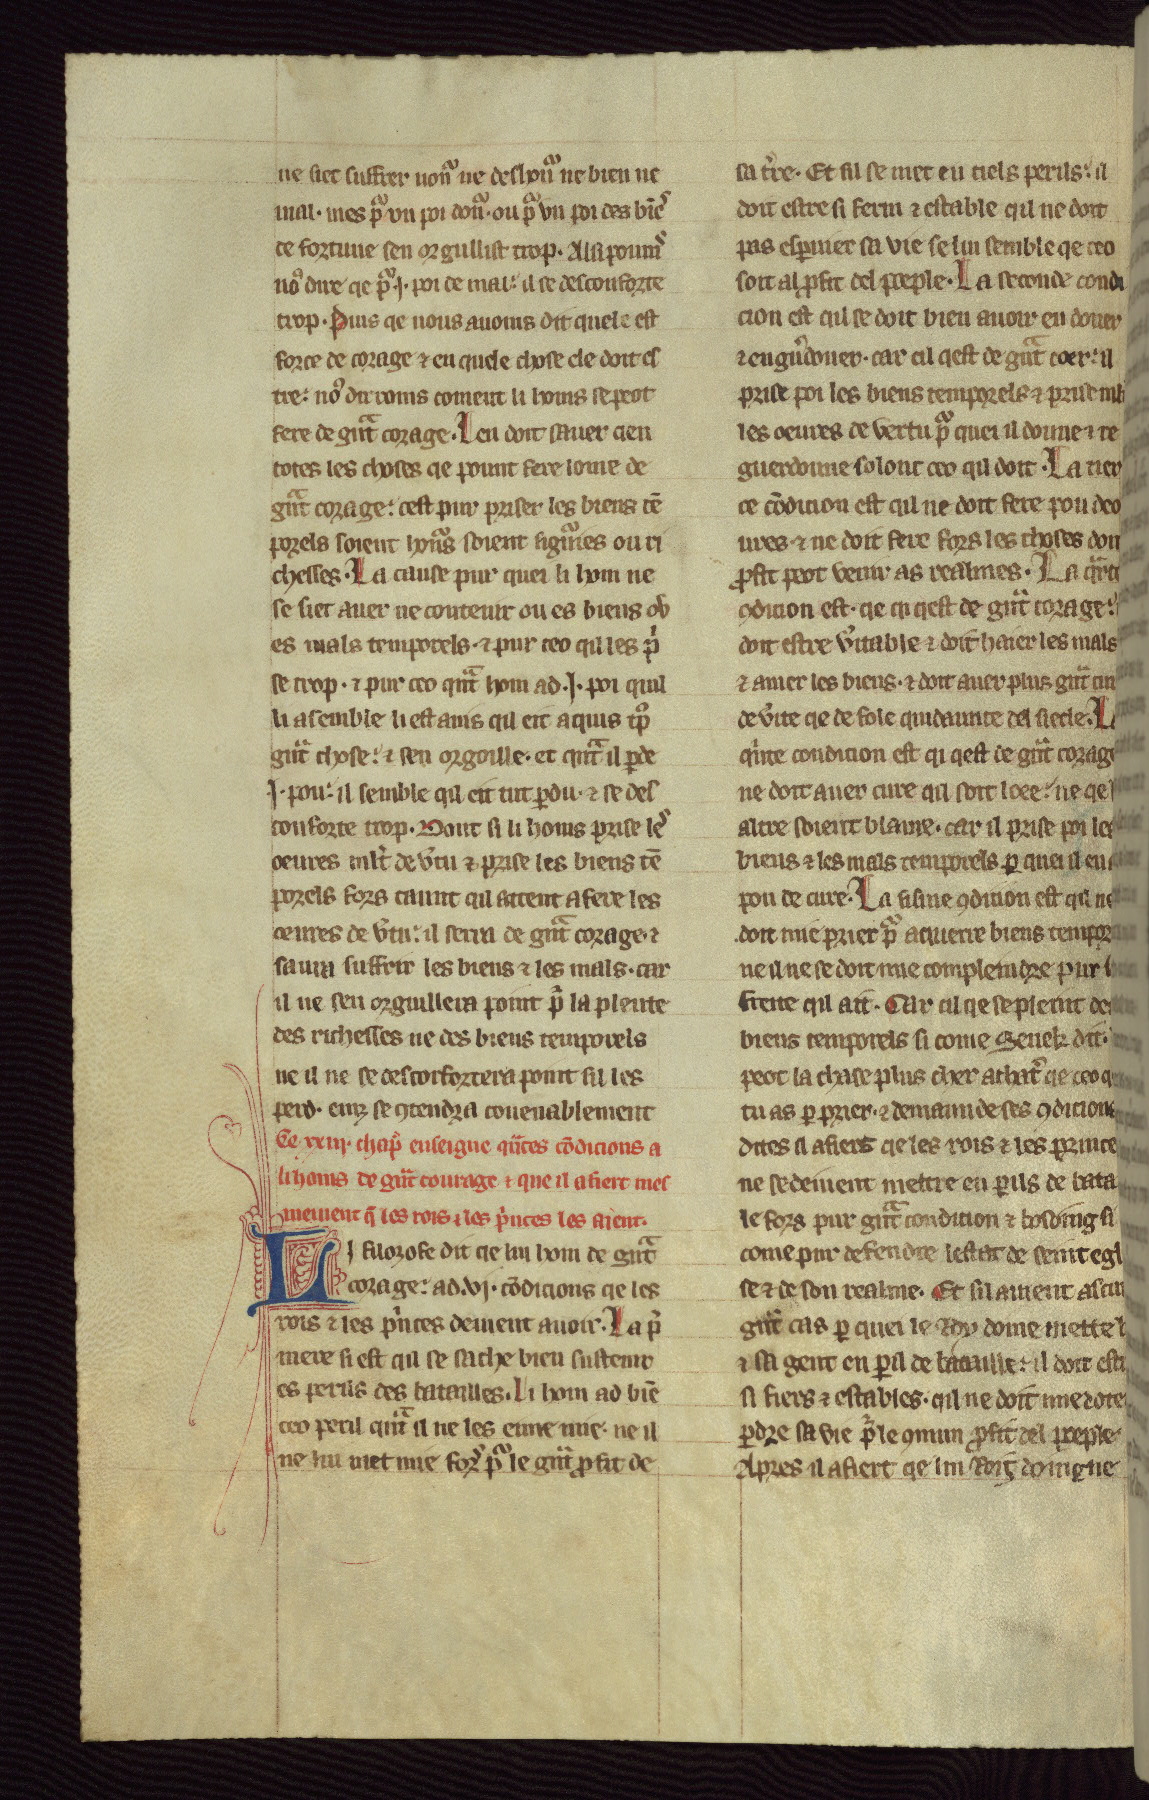 ne siet suffrer honᵃ ne deshonᵃ ne bien ne
mal· mes pᵃ un poi donᵃ· ou pᵃ un poi des biēs
de fortune sen orgullist trop· Ausi poums
noᵒ dire qe pᵃ ·j· poi de mal: il se desconforte
trop· Puis qe nous avoms dit quele est
force de corage ⁊ en quele chose ele doit es
tre: noᵒ dirroms coment li homs se peot
fere de gᵃnt corage· Len doit saver cien
totes les choses qe pount fere home de
gᵃnt corage: cest pur priser les biens tē
porels soient honᵃs soient signᵃies ou ri
chesses· La cause pur quei li hom ne
se siet aver ne contenir ou es biens ou
es mals temporels· ⁊ pur ceo qil les pⁱ
se trop· ⁊ pur ceo qᵃnt hom ad ·j· poi quil
li asemble li est avis qil eit aquis tᵒp
gᵃnt chose: ⁊ sen orgoille· et qᵃnt il p̱de
·j· pou: il semble qil eit tut p̱du· ⁊ se des
conforte trop· Dont si li homs prise les
oeures mlt de v̓tu ⁊ prise les biens tē
porels fors taunt qil attent a fere les
oeures de v̓tu: il serra de gᵃnt corage· ⁊
savra suffrir les biens ⁊ les mals· car
il ne sen orguillera point pᵃ la plente
des richesses ne des biens temporels
ne il ne se desconfortera point sil les
perd· einz se ꝯtendra covenablement
Ce xxiij· chapᵉ enseigne qᵃntes cōdicions a
li homs de gᵃnt courage ⁊ que il afiert mes
mement q̄ les rois ⁊ les pⁱnces les aient·
Li filozofe dit qe lui hom de gᵃnt
corage: ad ·vj· cōdicions qe les
rois ⁊ les pⁱnces deivent avoir· La pⁱ
mere si est qil se sache bien sustenir
es perils des batailles· Li hom ad biē
ceo peril qᵃnt il ne les eime mie· ne il
ne lui met mie fors pᵃ le gᵃnt ꝓfit de
sa t̓re· Et sil se met en tiels perils: il
doit estre si ferm ⁊ estable qil ne doit
pas esp̱nier sa vie se lui semble qe ceo
soit al ꝓfit del poeple· La seconde condi
cion est qil se doit bien avoir en doner
⁊ en gu̓doner· car cil qest de gᵃnt coer: il
prise poi les biens temporels ⁊ prise mlt
les oeures de vertu pᵃ quei il donne ⁊ re
guerdonne solont ceo qil doit· La tier
ce cōdicion est qil ne doit fere pou deo
ures· ⁊ ne doit fere fors les choses don
ꝓfit peot venir as realmes· La qᵃrte
ꝯdicion est· qe ci qest de gᵃnt corage:
doit estre v̓itable ⁊ doit haier les mals
⁊ amer les biens· ⁊ doit aver plus gᵃnt cur
de v̓ite qe de fole quidaunce del siecle· La
qⁱnte condicion est qi qest de gᵃnt corage
ne doit aver cure qil soit loee: ne qe
altre soient blame· car il prise poi les
biens ⁊ les mals temporels p̱ quei il en
pou de cure· La sisme ꝯdicion est qil ne
doit mie prier pᵃ aquerre biens tempor
ne il ne se doit mie compleindre pur
ait· Car cil qe se pleint des
biens temporels si come Senek dit·
peot la chose plus cher achat̓ qe ceo q
tu as p̱ prier· ⁊ demain de ses ꝯdicions
dites il afiert qe les rois ⁊ les prince
ne se deivent mettre en p̱ils de bata
le fors pur gᵃnt condition ⁊ bosoing si
come pur defendre lestat de seint egl
se ⁊ de son realme· Et sil avient ascun
gᵃnt cas p̱ quei le Roy mette
⁊ sa gent en p̱il de bataille: il doit est
si fiers ⁊ estables· qil ne doit mie dote
p̱dre sa vie pʳ le ꝯmun ꝓfit del poeple·
Apres il afiert qe lui Rois doingne